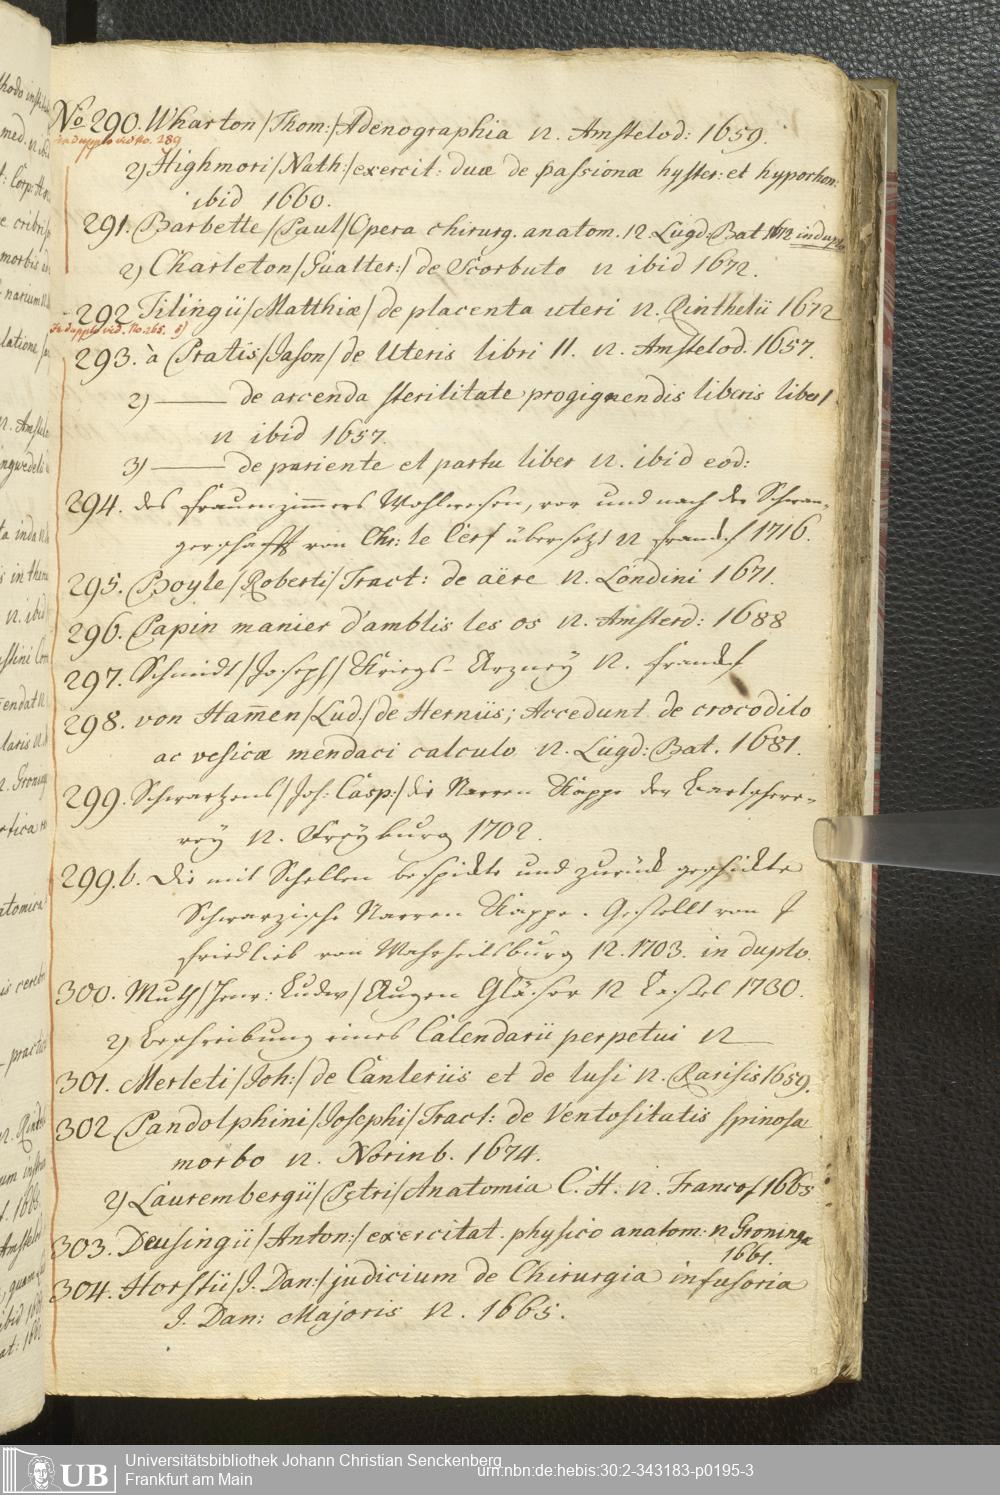 No 290. Wharton /Thom:/ Adenographia 12. Amstelod: 1659.
in dupplo vid No. 289
2) Highmori /Nath:/ exercit: duæ de passionæ hyster: et hypochon:
ibid 1660.
291. Barbette /Paul/ Opera chirurg. anatom. 12 Lugd. Bat 1672 in duplo
2) Charleton /Gualter:/ de Scorbuto 12 ibid 1672.
292 Tilingii /Matthiæ/ de placenta uteri 12. Rinthelii 1672
In dupplo vid. No. 265.
293. à Pratis /Jason/ de Uteris libri II. 12. Amstelod. 1657.
2) —— de arcenda sterilitate progignendis liberis liber I
12 ibid 1657.
3) —— de pariente et partu liber 12. ibid eod:
294. des Frauenzimmers Wohlwesen, vor und nach der Schwan-
gerschafft von Chr: le Cerf übersetzt 12 Franckf 1716.
295. Boyle /Roberti/ Tract: de aëre 12. Londini 1671.
296. Papin manier d'amblis les os 12. Amsterd: 1688
297. Schmidt /Joseph/ Kriegs-Arzney 12. Franckf
298. von Ham̄en /Lud./ de Herniis; Accedunt de crocodilo
ac vesicæ mendaci calculo 12. Lugd: Bat. 1681.
299. Schwartzens /Joh: Casp:/ die Narren Kappe der
12. Freyburg 1702.
299.b. Die mit Schellen bespickte und zurück geschickte
Schwarzische Narren Kappe. Gestellt von J
Friedlieb von Wahrheitsburg 12. 1703. in duplo.
300. Muth /Henr: Ludw/ Augen Gläser 12 Cassel 1730.
2) Beschreibung eines Calendarii perpetui 12 ——
301. Merleti /Joh:/ de Canteriis et de lusi 12. Parisis 1659.
302 Pandolphini /Josephi/ Tract: de Ventositatis spinosa
morbo 12. Norinb. 1674.
2) Laurembergii /Petri/ Anatomia C. H. 12. Francof 1665
303. Deusingii /Anton:/ exercitat. physico anatom: 12 Groninga
1661.
304. Horstii /J. Dan:/ judicium de Chirurgia infusoria
J. Dan: Majoris 12. 1665.
UB Universitätsbibliothek Johann Christian Senckenberg
Frankfurt am Main
urn:nbn:de:hebis:30:2-343183-p0195-3